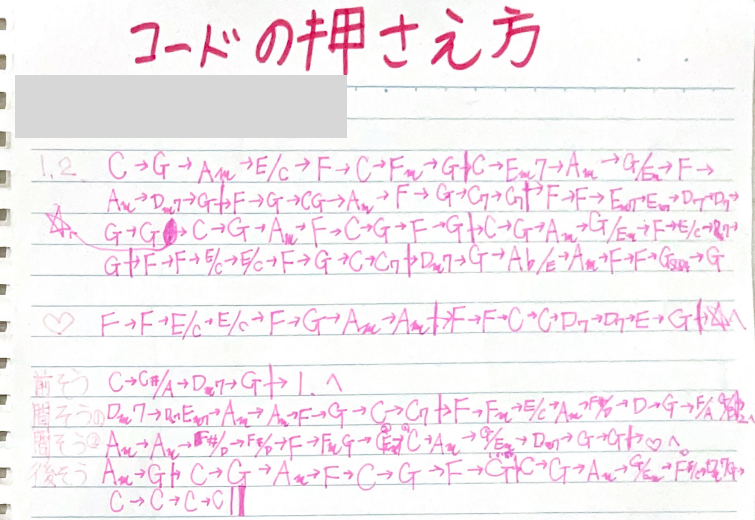 コードの押さえ方
1,2 C→G→Am→E/C→F→C→Fm→G→C→Em7→Am→G/Em→F→
Am→Dm7→G→F→G→CG→Am→F→G→C7→C7→F→F→Em7→Em→D7→D7→
☆ G→G→C→G→Am→F→C→G→F→G→C→G→Am→G/Em→F→E/C→
G→F→F→E/C→E/C→F→G→C→C7→Dm7→G→Ab/E→Am→F→F→G→G
♡ F→F→E/C→E/C→F→G→Am→Am→F→F→C→C→D7→D7→E→G→☆へ
前そう C→C#/A→Dm7→G→1.へ
間そう① Dm7→Em7→Am→Am→F→G→C→C7→F→Fm→E/C→Am→F#/D→D→G→F/A
間そう② Am→Am→F#/D→F#/D→F→Fm G→C→Am→G/Em→Dm7→G→G→♡へ
後そう Am→G→C→G→Am→F→C→G→F→G→C→G→Am→G/Em→F
C→C→C→C